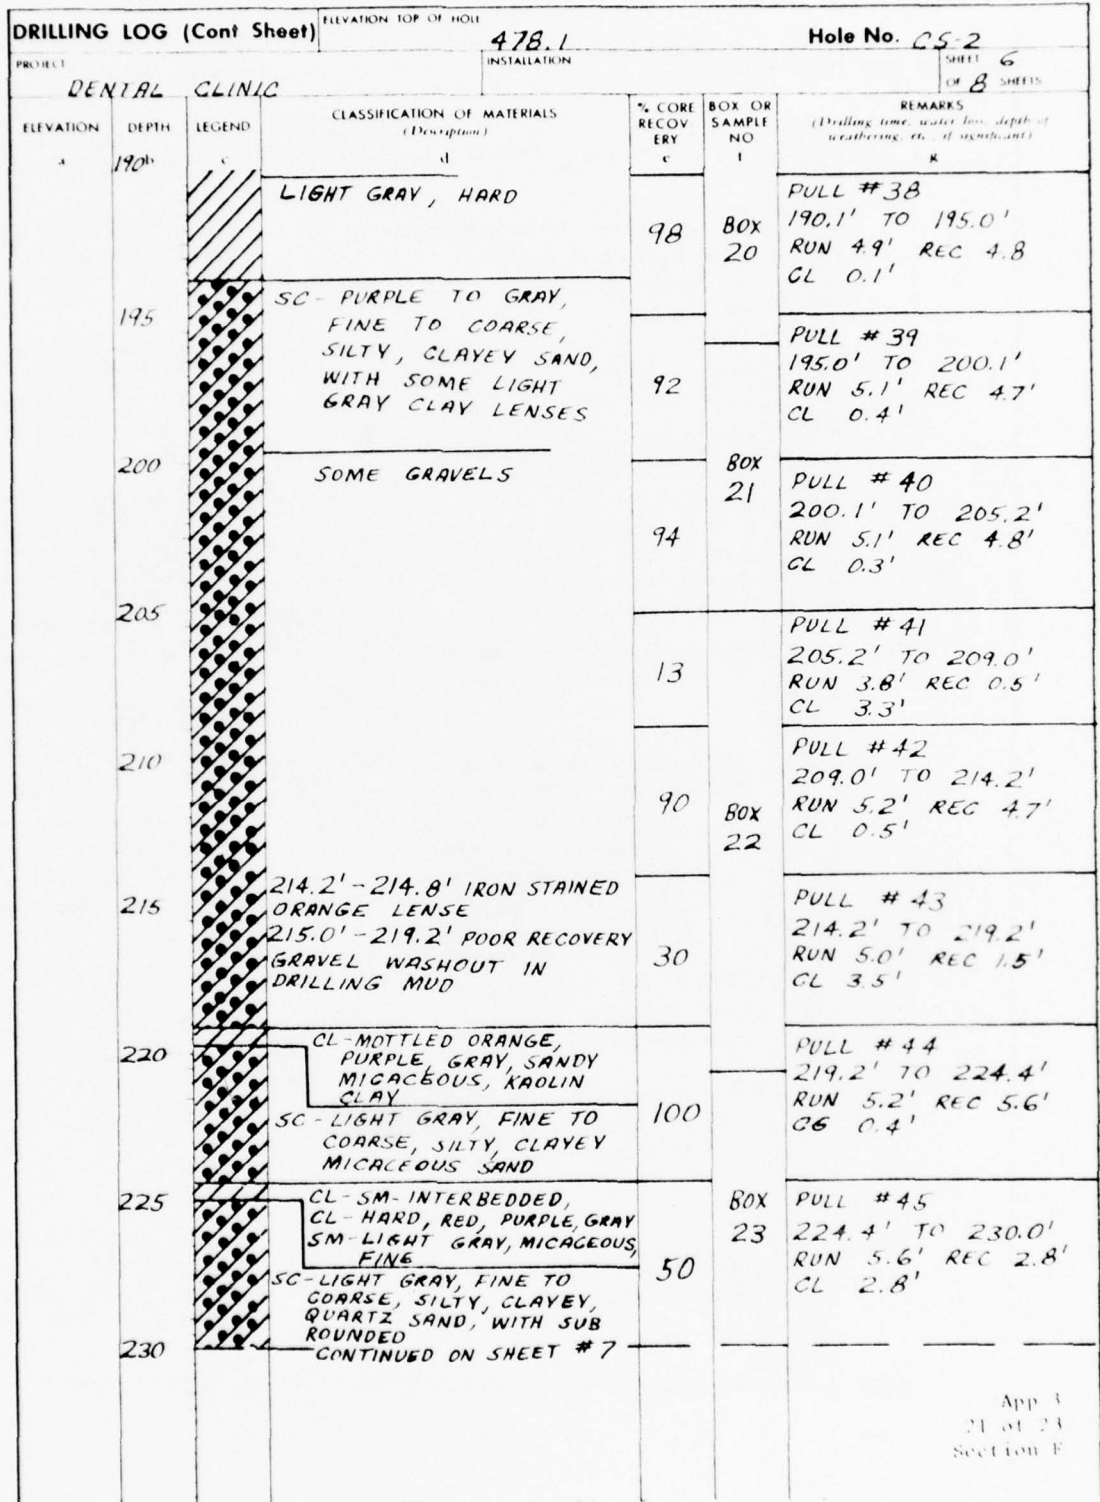 DRILLING LOG (Cont Sheet)
ELEVATION TOP OF HOLE
478.1
Hole No. CS-2
PROJECT
DENTAL CLINIC
INSTALLATION
SHEET 6
OF 8 SHEETS
ELEVATION
a
DEPTH
190b
LEGEND
c
CLASSIFICATION OF MATERIALS
(Description)
d
% CORE
RECOV-
ERY
e
BOX OR
SAMPLE
NO
f
REMARKS
(Drilling time, water loss, depth of
weathering, etc., if significant)
g
LIGHT GRAY, HARD
98
BOX
20
PULL #38
190.1' TO 195.0'
RUN 4.9' REC 4.8
CL 0.1'
195
SC - PURPLE TO GRAY,
FINE TO COARSE,
SILTY, CLAYEY SAND,
WITH SOME LIGHT
GRAY CLAY LENSES
92
PULL #39
195.0' TO 200.1'
RUN 5.1' REC 4.7'
CL 0.4'
200
SOME GRAVELS
94
BOX
21
PULL #40
200.1' TO 205.2'
RUN 5.1' REC 4.8'
CL 0.3'
205
13
PULL #41
205.2' TO 209.0'
RUN 3.8' REC 0.5'
CL 3.3'
210
90
BOX
22
PULL #42
209.0' TO 214.2'
RUN 5.2' REC 4.7'
CL 0.5'
215
214.2' - 214.8' IRON STAINED
ORANGE LENSE
215.0' - 219.2' POOR RECOVERY
GRAVEL WASHOUT IN
DRILLING MUD
30
PULL #43
214.2' TO 219.2'
RUN 5.0' REC 1.5'
CL 3.5'
220
CL - MOTTLED ORANGE,
PURPLE, GRAY, SANDY
MICACEOUS, KAOLIN
CLAY
SC - LIGHT GRAY, FINE TO
COARSE, SILTY, CLAYEY
MICACEOUS SAND
100
PULL #44
219.2' TO 224.4'
RUN 5.2' REC 5.6'
CG 0.4'
225
CL-SM-INTERBEDDED,
CL - HARD, RED, PURPLE, GRAY
SM-LIGHT GRAY, MICACEOUS,
FINE
SC - LIGHT GRAY, FINE TO
COARSE, SILTY, CLAYEY,
QUARTZ SAND, WITH SUB
ROUNDED
50
BOX
23
PULL #45
224.4' TO 230.0'
RUN 5.6' REC 2.8'
CL 2.8'
230
CONTINUED ON SHEET #7
App 3
21 of 23
Section F